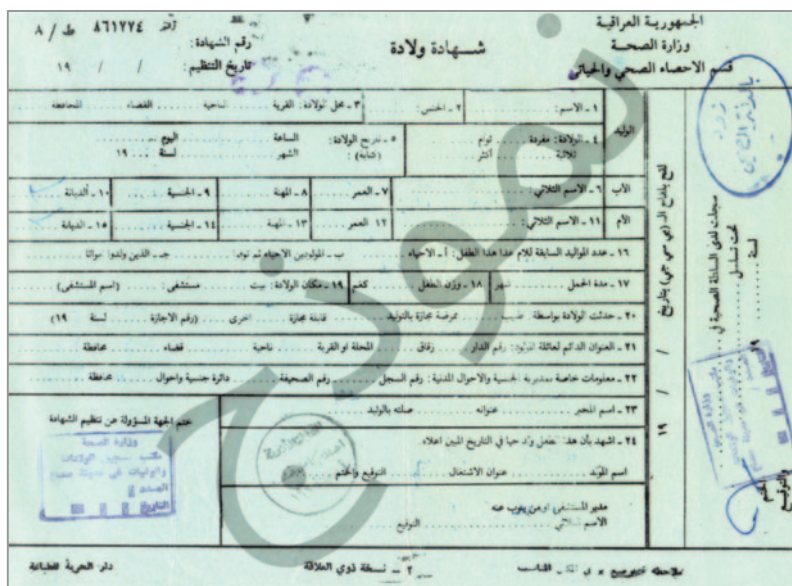 الجمهورية العراقية
وزارة الصحة
قسم الاحصاء الصحي والحياتي
شهادة ولادة
رقم ٨٦١٧٧٤ ط / ٨
رقم الشهادة :
تاريخ التنظيم : / / ١٩
الوليد
١ ـ الاسم : ٢ ـ الجنس : ٣ ـ محل الولادة : القرية الناحية القضاء المحافظة
٤ ـ الولادة : مفردة توأم ٥ ـ تاريخ الولادة : الساعة اليوم
ثلاثية أكثر (كتابة) : الشهر لسنة ١٩
الأب ٦ ـ الاسم الثلاثي : ٧ ـ العمر ٨ ـ المهنة ٩ ـ الجنسية ١٠ ـ الديانة
الأم ١١ ـ الاسم الثلاثي : ١٢ العمر ١٣ ـ المهنة ١٤ ـ الجنسية ١٥ ـ الديانة
١٦ ـ عدد المواليد السابقة للام عدا هذا الطفل : أ ـ الاحياء ب ـ المولودين الاحياء ثم توفوا جـ ـ الذين ولدوا امواتا
١٧ ـ مدة الحمل شهر ١٨ ـ وزن الطفل كغم ١٩ ـ مكان الولادة : بيت مستشفى : (اسم المستشفى)
٢٠ ـ حدثت الولادة بواسطة طبيب ممرضة مجازة بالتوليد قابلة مجازة اخرى (رقم الاجازة لسنة ١٩)
٢١ ـ العنوان الدائم لعائلة المولود : رقم الدار زقاق المحلة او القرية ناحية قضاء محافظة
٢٢ ـ معلومات خاصة بمديرية الجنسية والاحوال المدنية : رقم السجل رقم الصحيفة دائرة جنسية واحوال محافظة
٢٣ ـ اسم المخبر عنوانه صلته بالوليد
ختم الجهة المسؤولة عن تنظيم الشهادة
٢٤ ـ اشهد بأن هذا الطفل ولد حيا في التاريخ المبين اعلاه
اسم المولد عنوان الاشتغال التوقيع والختم
وزارة الصحة
مكتب تسجيل الولادات
والوفيات في مدينة
العدد
التاريخ
مدير المستشفى او من ينوب عنه
الاسم الثلاثي التوقيع
لقح بلقاح الـ (بي سي جي) بتاريخ / / ١٩
سجلت لدى السلطة الصحية في
تحت تسلسل
لسنة
والتوقيع
الختم
نموذج
٢ ـ نسخة ذوي العلاقة
دار الحرية للطباعة